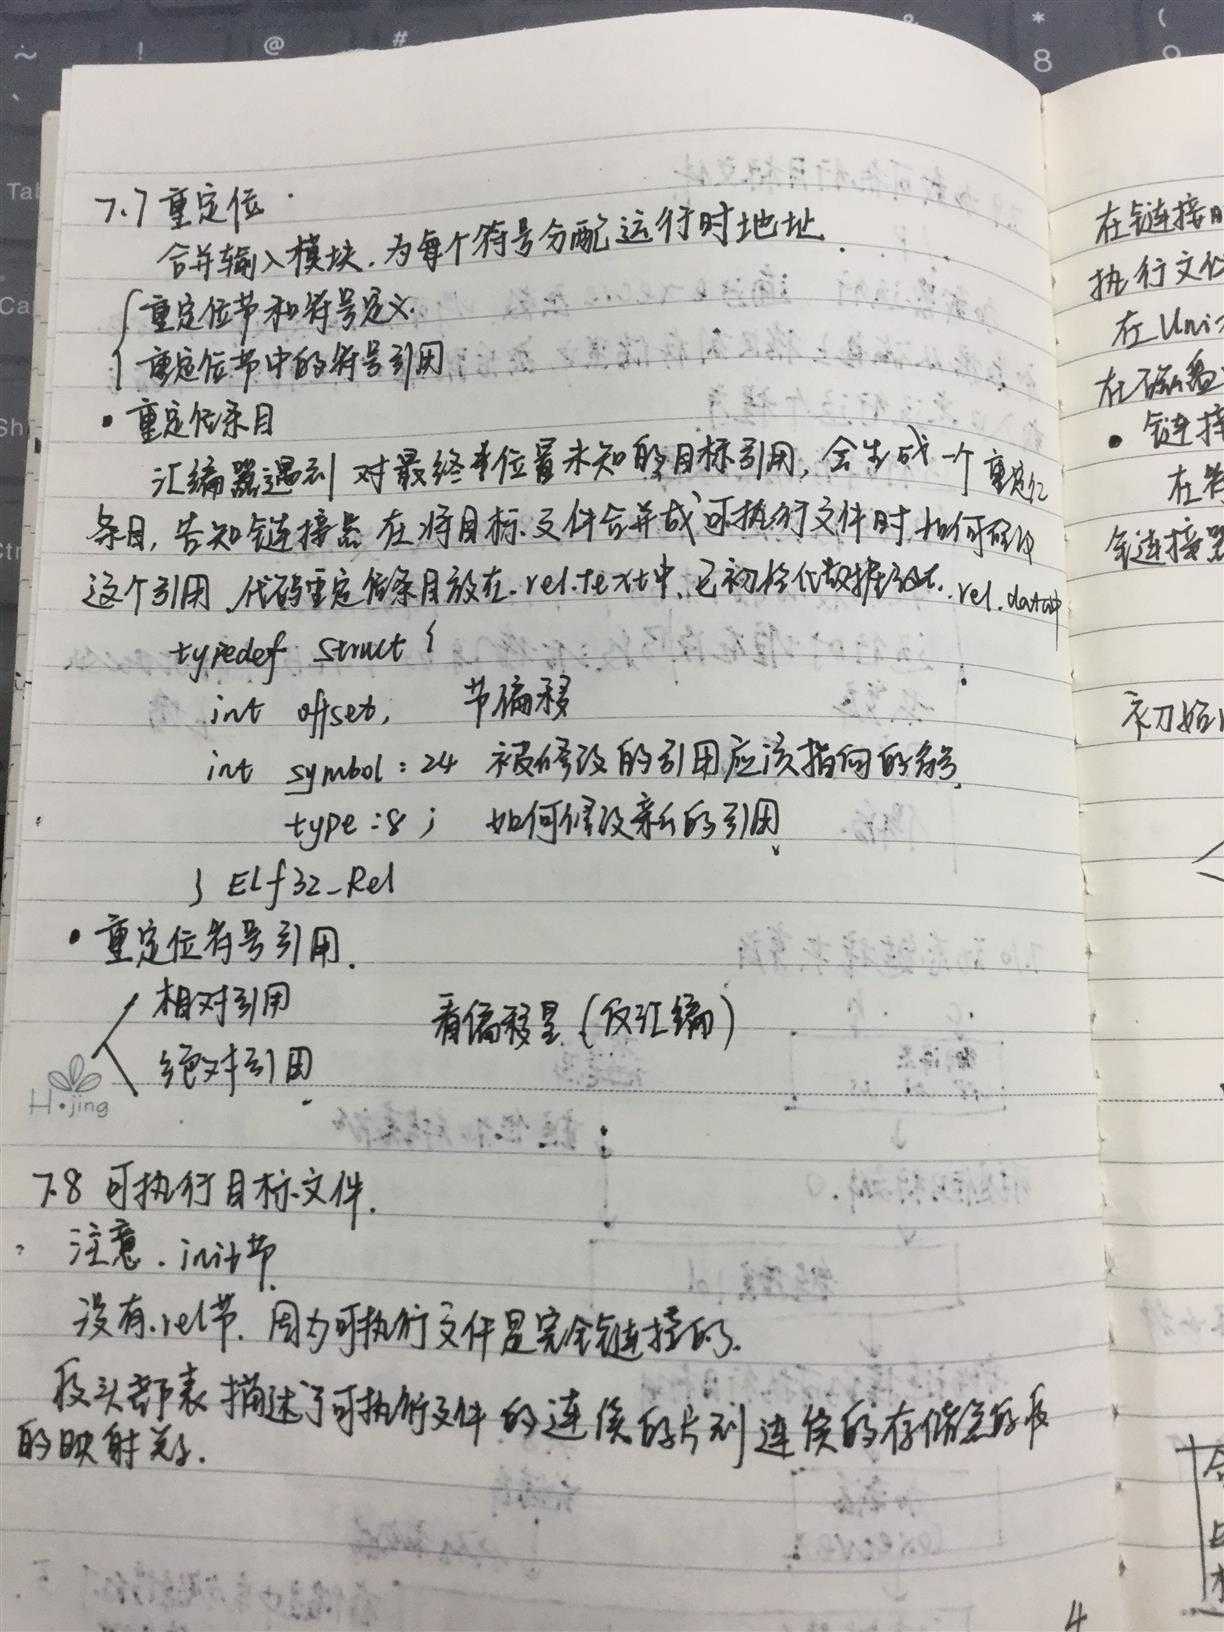 7.7 重定位
合并输入模块,为每个符号分配运行时地址.
重定位节和符号定义.
重定位节中的符号引用
• 重定位条目
汇编器遇到对最终位置未知的目标引用,会生成一个重定位
条目,告知链接器在将目标文件合并成可执行文件时如何修改
这个引用.代码重定位条目放在.rel.text中,已初始化数据放在.rel.data中
typedef struct {
int offset, 节偏移
int symbol:24 被修改的引用应该指向的符号.
type:8; 如何修改新的引用
} Elf32_Rel
• 重定位符号引用.
相对引用
看偏移量(反汇编)
绝对引用
H·jing
7.8 可执行目标文件.
注意.init节
没有.rel节.因为可执行文件是完全链接的.
段头部表描述了可执行文件的连续的片到连续的存储器的段
的映射关系.
在链接
执行文件
在Uni
在磁盘
• 链接
在
链接器
初始化
4